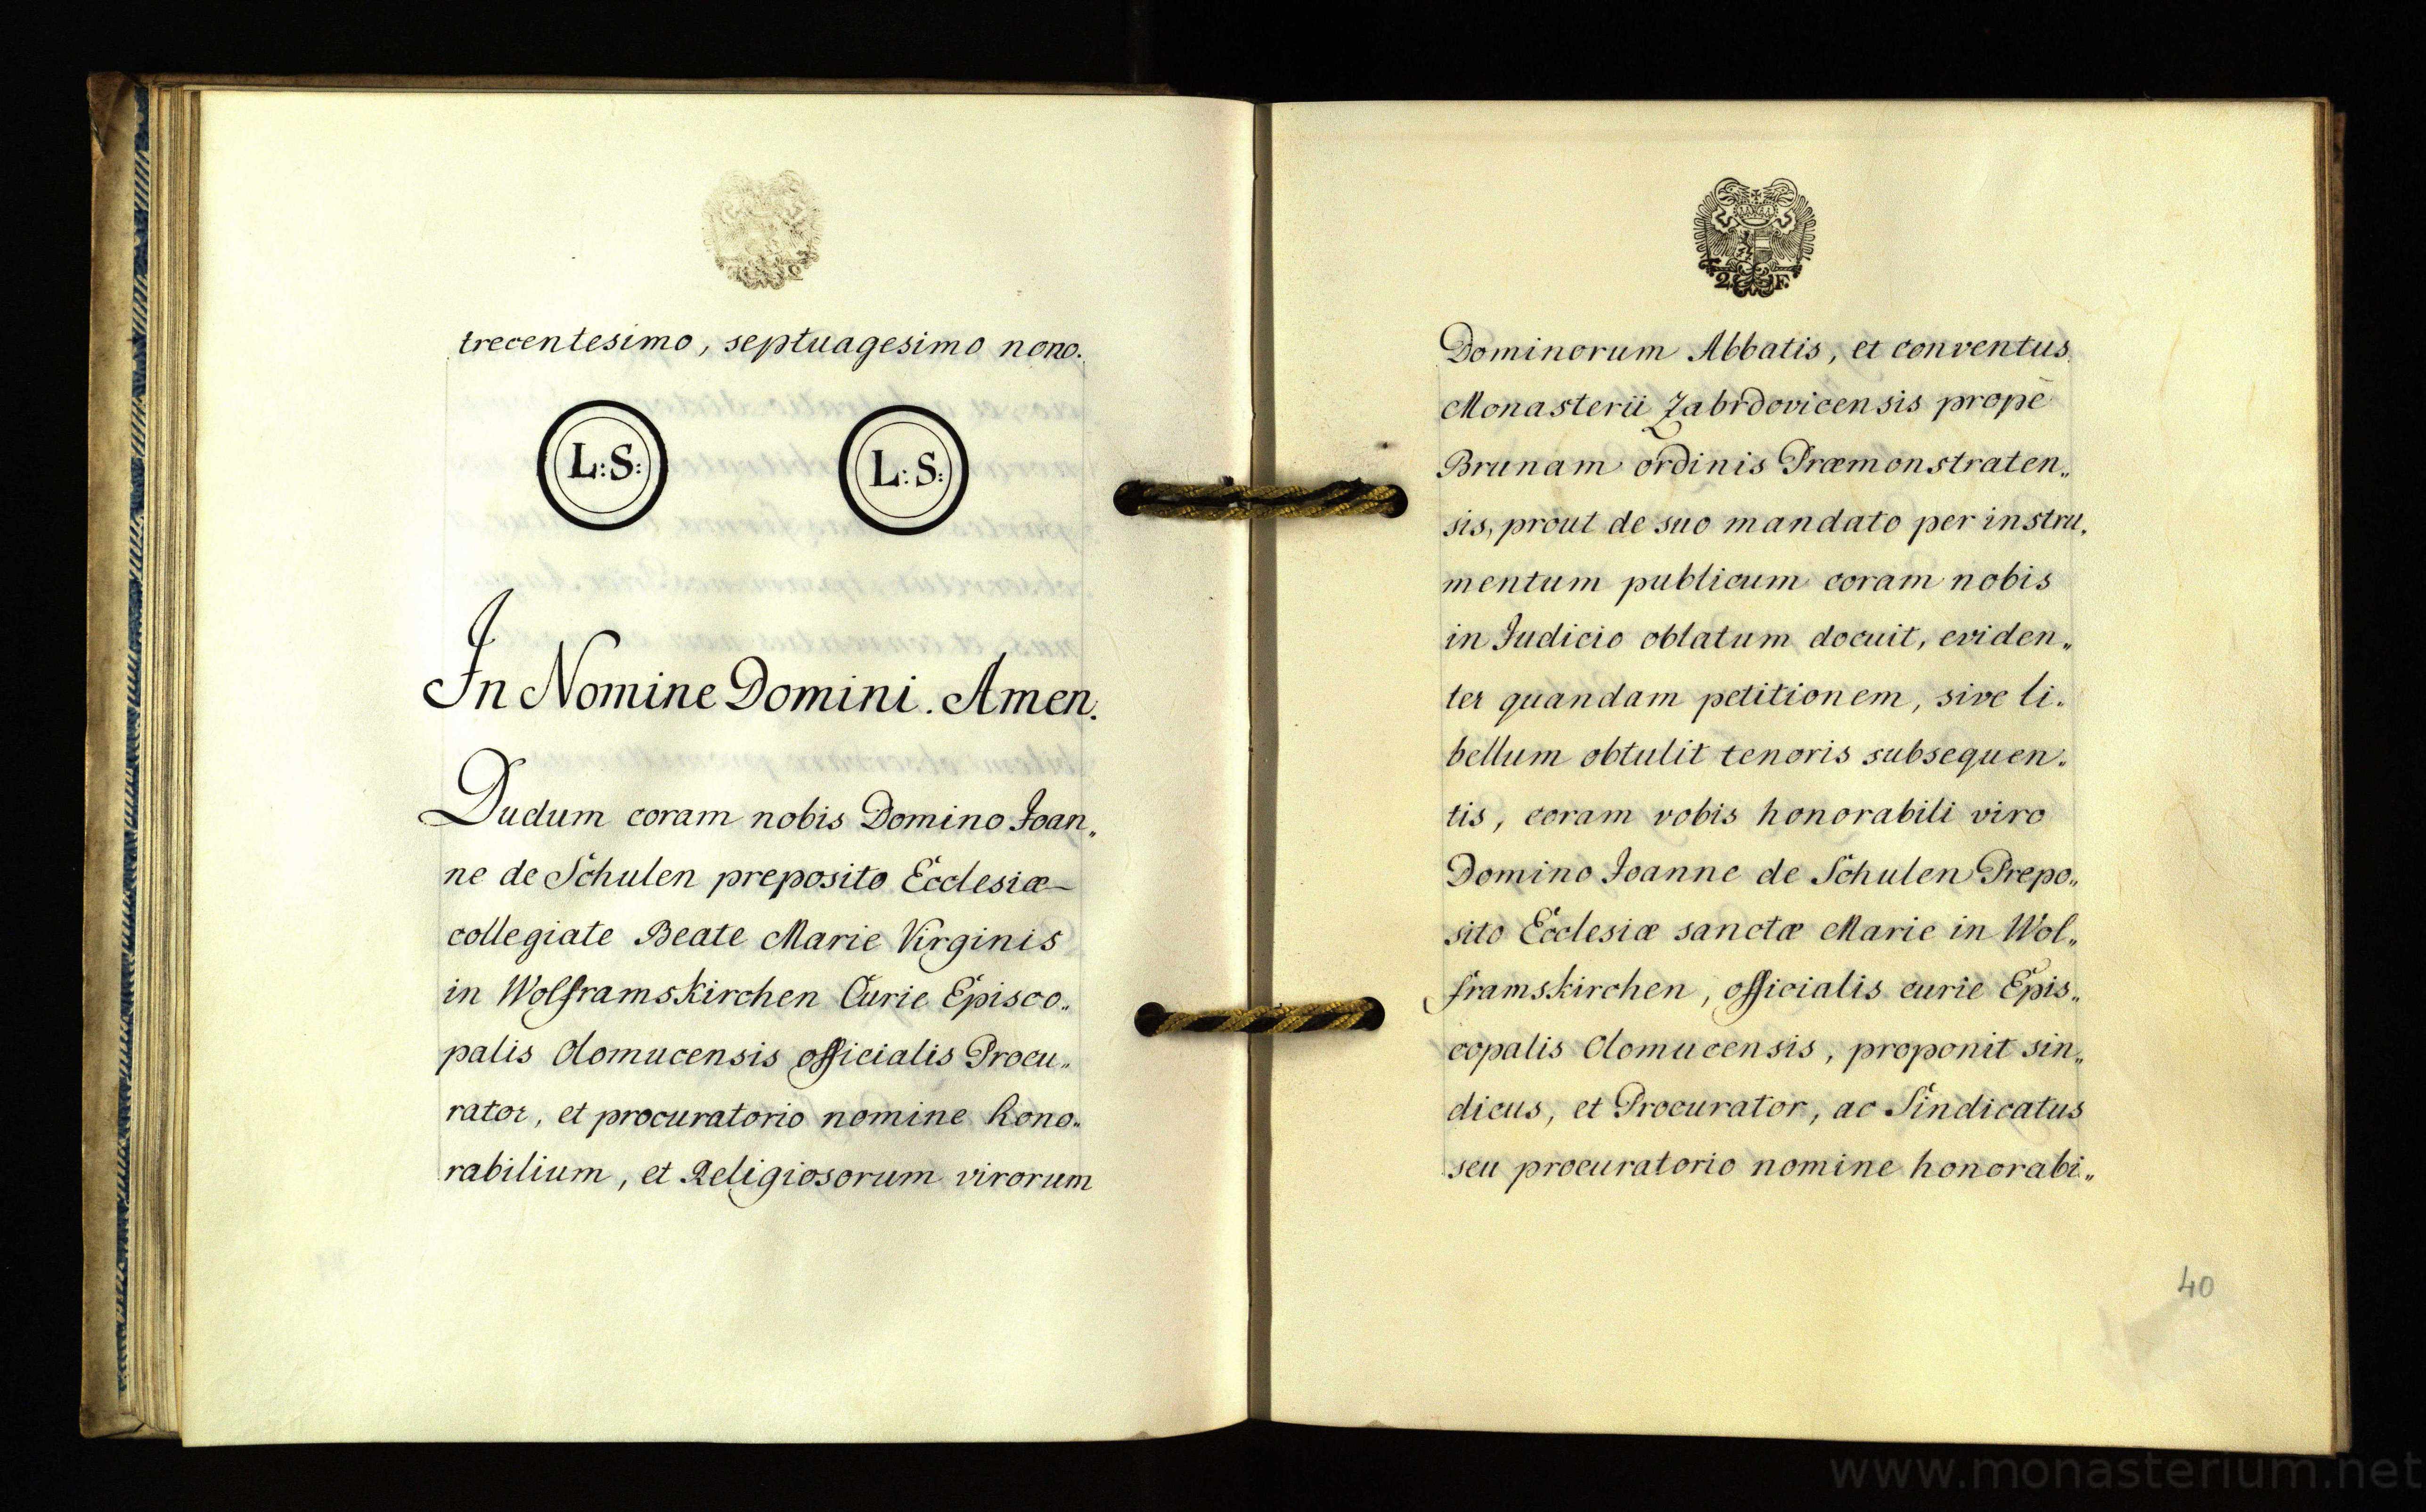 trecentesimo, septuagesimo nono.
L:S: L:S:
In Nomine Domini. Amen.
Dudum coram nobis Domino Joan„
ne de Schulen preposito Ecclesiæ
collegiate Beate Marie Virginis
in Wolframskirchen Curie Episco„
palis Olomucensis officialis Procu„
rator, et procuratorio nomine hono„
rabilium, et Religiosorum virorum
2 F.
Dominorum Abbatis, et conventus
Monasterii Zabrdovicensis propè
Brunam ordinis Præmonstraten„
sis, prout de suo mandato per instru„
mentum publicum coram nobis
in Judicio oblatum docuit, eviden„
ter quandam petitionem, sive li„
bellum obtulit tenoris subsequen„
tis, coram vobis honorabili viro
Domino Joanne de Schulen Prepo„
sito Ecclesiæ sanctæ Marie in Wol„
framskirchen, officialis curie Epis„
copalis Olomucensis, proponit sin„
dicus, et Procurator, ac Sindicatus
seu procuratorio nomine honorabi„
40
www.monasterium.net